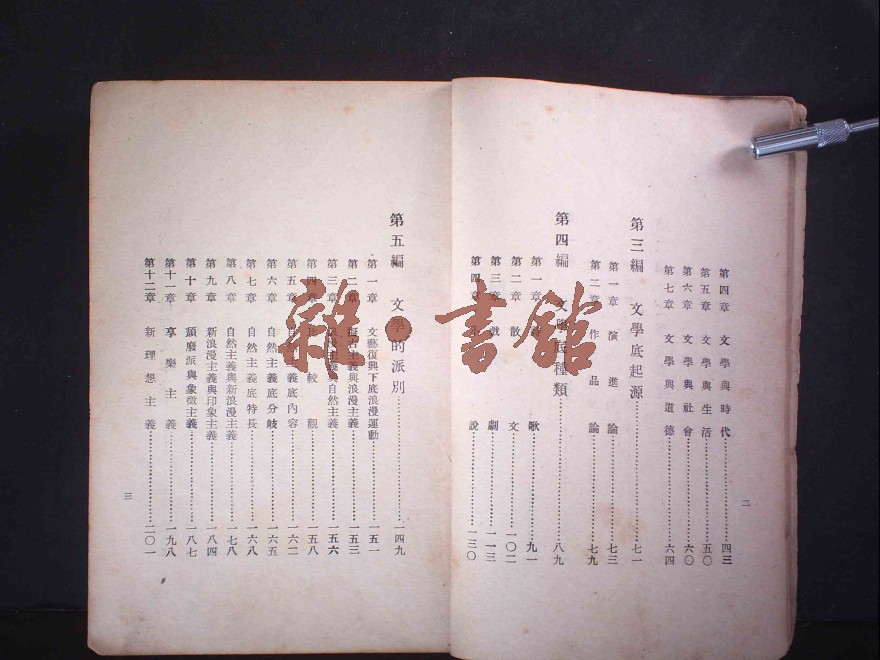 第四章 文學與時代 四三
第五章 文學與生活 五〇
第六章 文學與社會 六〇
第七章 文學與道德 六四
第三編 文學底起源 七一
第一章 演進論 七三
第二章 作品論 七九
第四編 文學底種類 八九
第一章 歌 九一
第二章 散文 一〇二
第三章 戲劇 一一三
第四章 說 一三〇
二
第五編 文學的派別 一四九
第一章 文藝復興下底浪漫運動 一五一
第二章 擬古主義與浪漫主義 一五三
第三章 浪漫主義與自然主義 一五六
第四章 比較觀 一五八
第五章 自然主義底內容 一六二
第六章 自然主義底分歧 一六五
第七章 自然主義底特長 一六八
第八章 自然主義與新浪漫主義 一七八
第九章 新浪漫主義與印象主義 一八四
第十章 頹廢派與象徵主義 一八七
第十一章 享樂主義 一九八
第十二章 新理想主義 二〇一
三
雜·書館